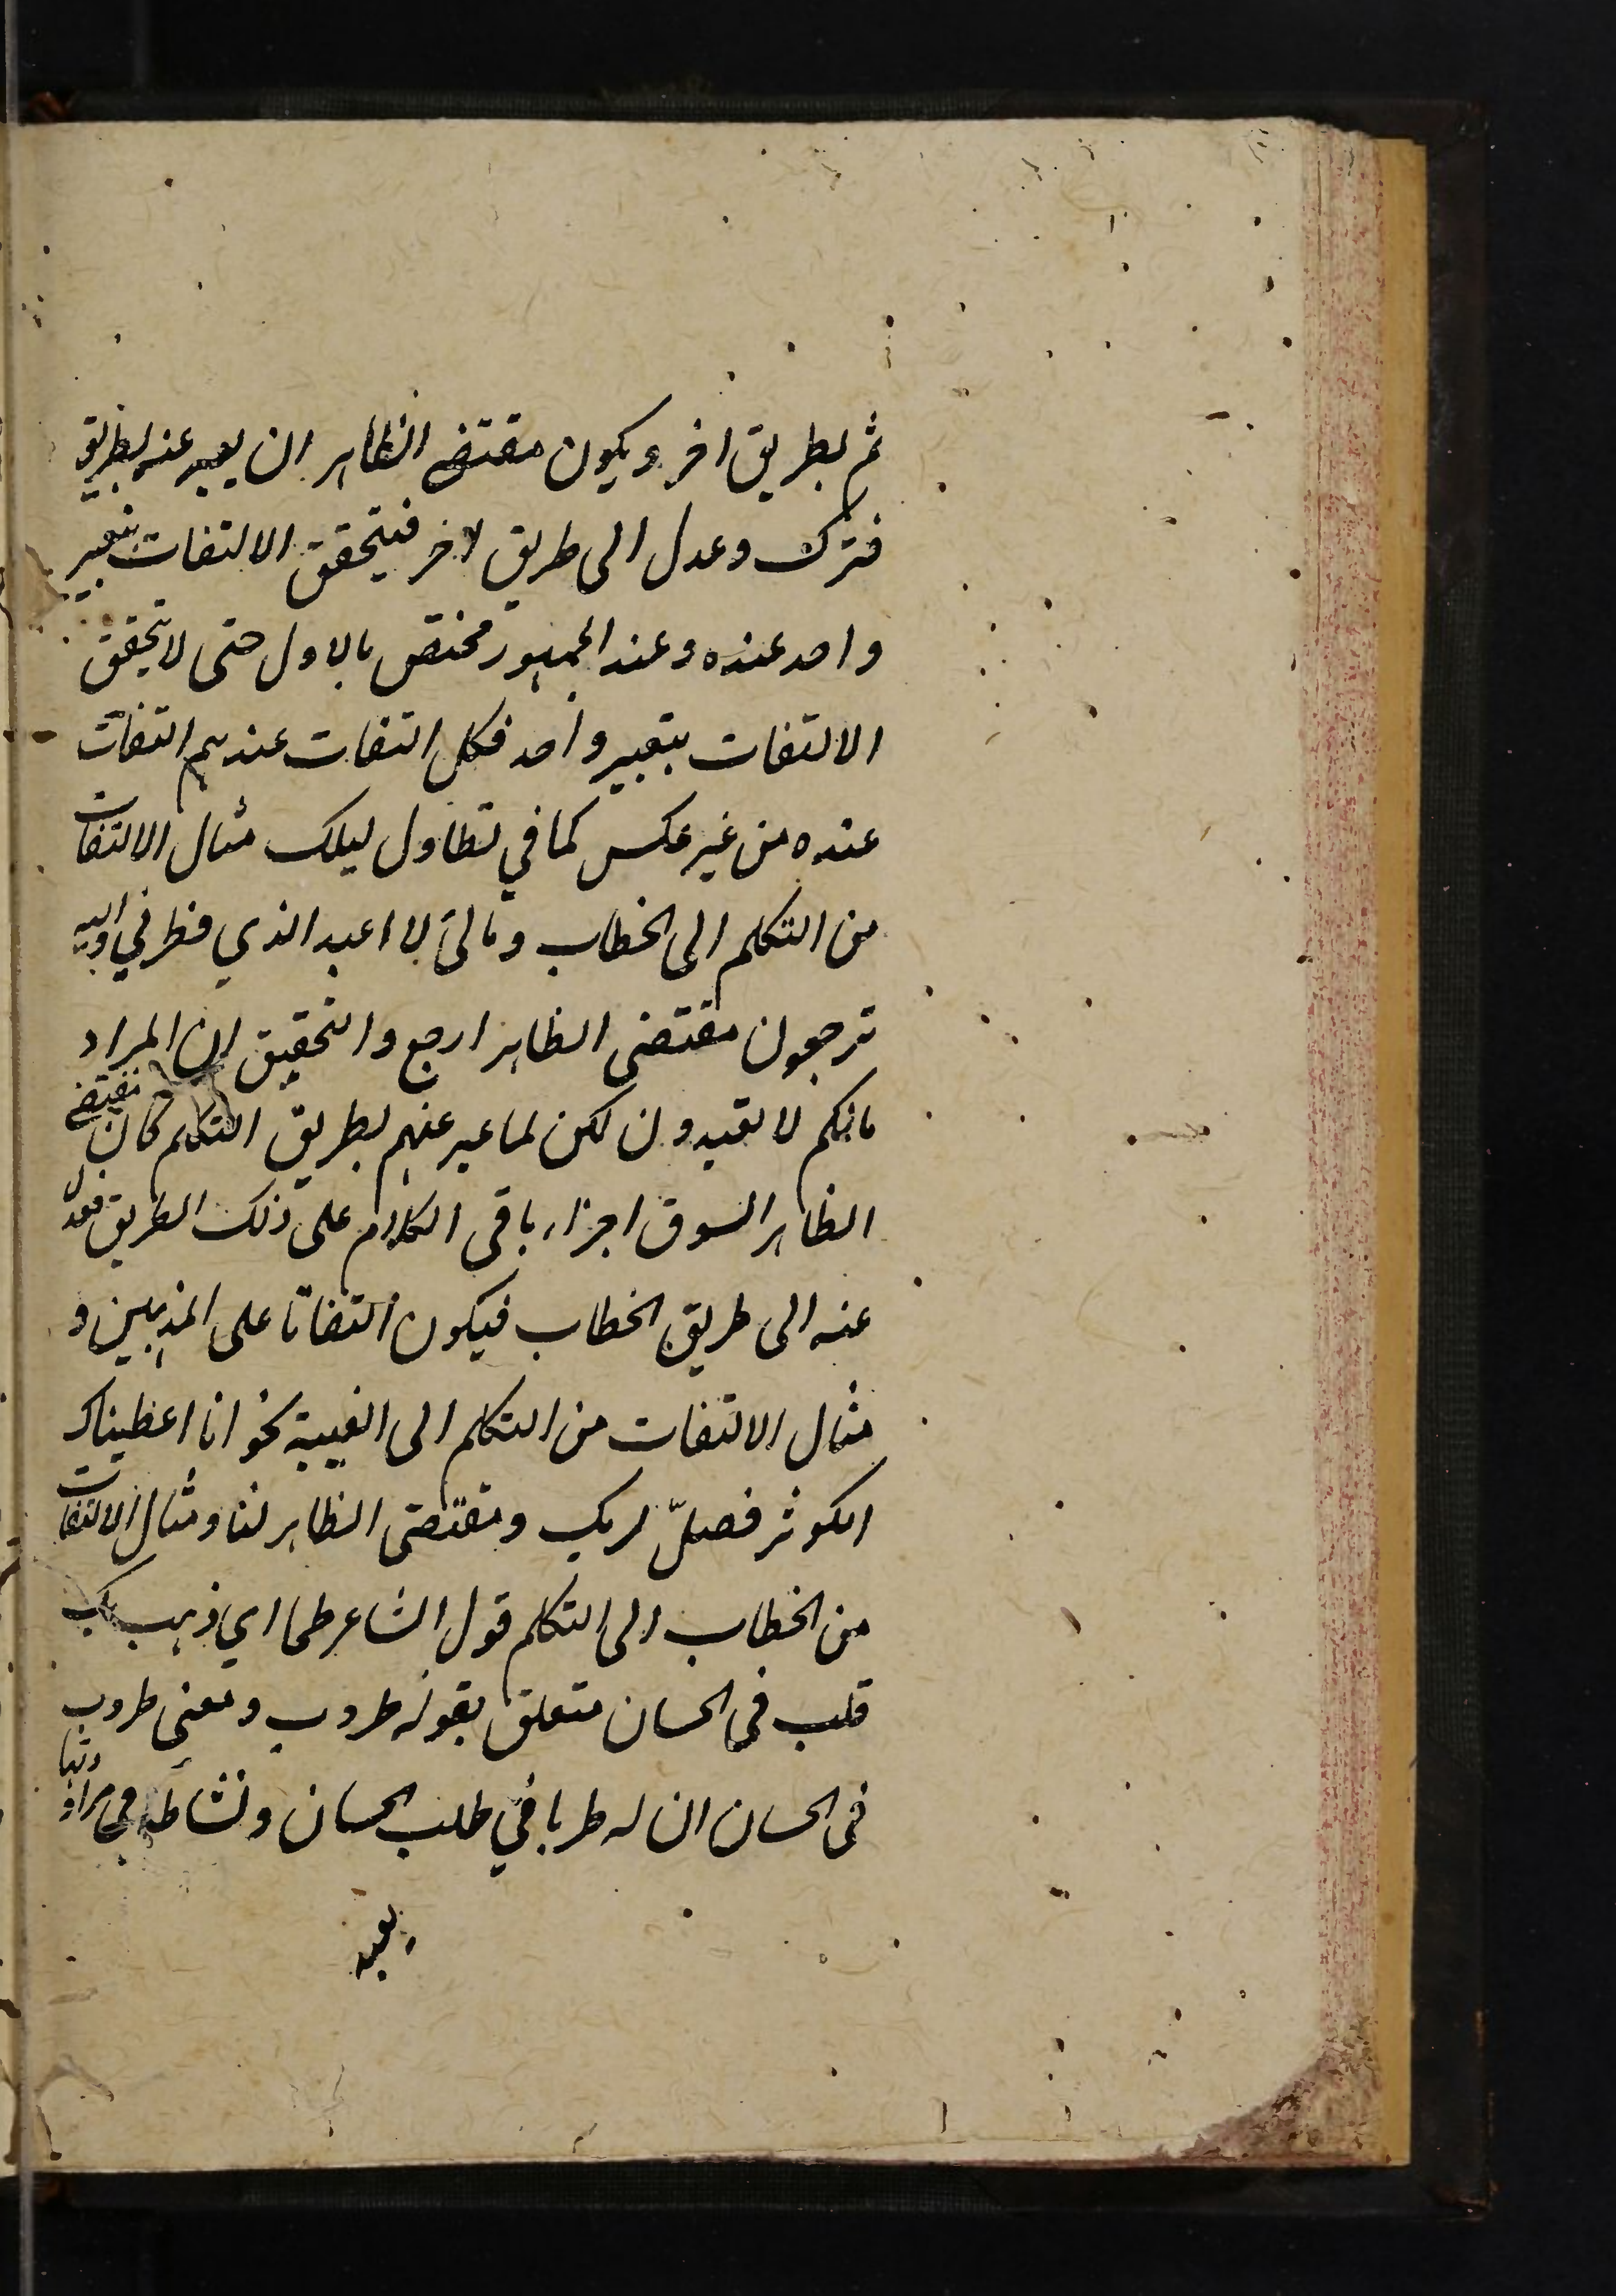 ثم بطريق اخر ويكون مقتضى الظاهر ان يعبر عنه بطريق
فترك وعدل الى طريق اخر فيتحقق الالتفات بتعبير
واحد عنده وعند الجمهور مختص بالاول حتى لا يتحقق
الالتفات بتعبير واحد فكل التفات عندهم التفات
عنده من غير عكس كما في تطاول ليلك مثال الالتفات
من التكلم الى الخطاب ومالي لا اعبد الذي فطرني واليه
ترجعون مقتضى الظاهر ارجع والتحقيق ان المراد
مالكم لا تعبدون لكن لما عبر عنهم بطريق التكلم كان مقتضى
الظاهر السوق اجراء باقي الكلام على ذلك الطريق فعدل
عنه الى طريق الخطاب فيكون التفاتا على المذهبين و
مثال الالتفات من التكلم الى الغيبة نحو انا اعطيناك
الكوثر فصلّ لربك ومقتضى الظاهر لنا ومثال الالتفات
من الخطاب الى التكلم قول الشاعر طحا اي ذهب بك
قلب في الحسان متعلق بقوله طروب ومعنى طروب
في الحسان ان له طربا في طلب الحسان ونشاطا في مراودتها
بعيد